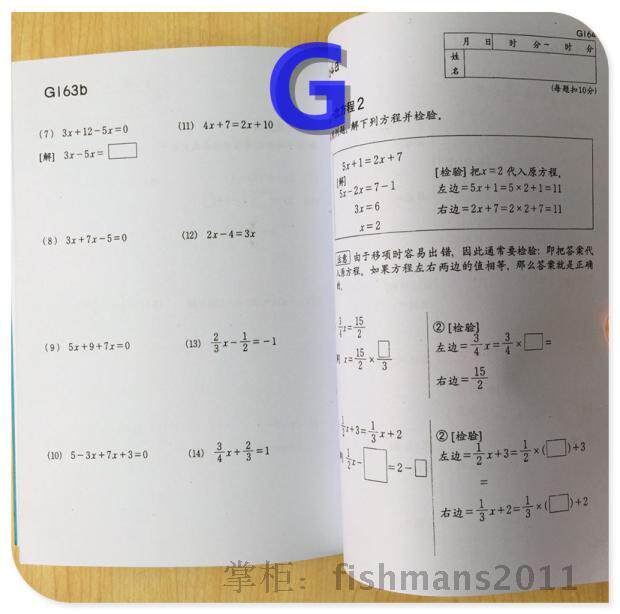 G163b
(7) 3x+12-5x=0
[解] 3x-5x=
(8) 3x+7x-5=0
(9) 5x+9+7x=0
(10) 5-3x+7x+3=0
(11) 4x+7=2x+10
(12) 2x-4=3x
(13) 2/3 x - 1/2 = -1
(14) 3/4 x + 2/3 = 1
G
G164
月 日 时 分~ 时 分
姓名
(每题扣10分)
方程2
解下列方程并检验。
5x+1=2x+7
[解]
5x-2x=7-1
3x=6
x=2
[检验] 把x=2代入原方程,
左边=5x+1=5×2+1=11
右边=2x+7=2×2+7=11
注意 由于移项时容易出错, 因此通常要检验: 即把答案代
入原方程, 如果方程左右两边的值相等, 那么答案就是正确
的.
3/4 x = 15/2
x = 15/2 × /3
② [检验]
左边 = 3/4 x = 3/4 × =
右边 = 15/2
1/2 x+3 = 1/3 x+2
1/2 x - = 2-
② [检验]
左边 = 1/2 x+3 = 1/2 ×( )+3
=
右边 = 1/3 x+2 = 1/3 ×( )+2
掌柜: fishmans2011